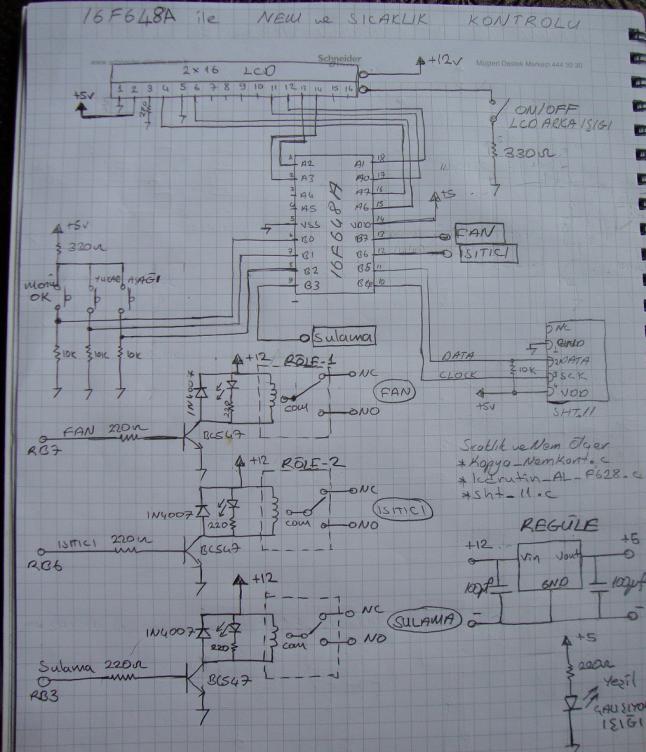 16F648A ile NEM ve SICAKLIK KONTROLU
Schneider
Müşteri Destek Merkezi 444 30 30
2x16 LCD
+12v
1 2 3 4 5 6 7 8 9 10 11 12 13 14 15 16
+5v
ON/OFF
LCD ARKA IŞIĞI
330Ω
16F648A
1 A2 A1 18
2 A3 A0 17
3 A4 A7 16
4 A5 A6 15
5 VSS VDD 14
6 B0 B7 13
7 B1 B6 12
8 B2 B5 11
9 B3 B4 10
+5
FAN
ISITICI
Sulama
+5v
330Ω
OK
AŞAĞI
10K 10K 10K
DATA
CLOCK
10K
+5v
NC
GND
DATA
SCK
VDD
SHT11
+12 RÖLE-1
NC
COM
NO
FAN
1N4007
FAN 220Ω
BC547
RB7
Sıcaklık ve Nem Ölçer
*Kopya_NemKont.c
*lcdrutin_AL_F628.c
*sht_11.c
+12 RÖLE-2
NC
COM
NO
ISITICI
1N4007
220
ISITICI 220Ω
BC547
RB6
REGÜLE
+12 +5
Vin Vout
GND
100µf 100µf
+12
NC
COM
NO
SULAMA
1N4007
220
Sulama 220Ω
BC547
RB3
+5
220Ω
Yeşil
ÇALIŞIYOR
IŞIĞI